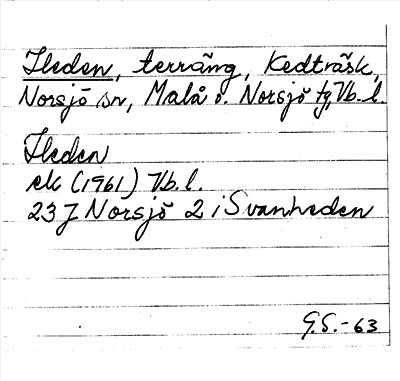 Heden, terräng, Kedträsk,
Norsjö sn, Malå o. Norsjö tg, Vb. l.
Heden
ek (1961) Vb. l.
23 J Norsjö 2 i Svanheden
G.S.-63